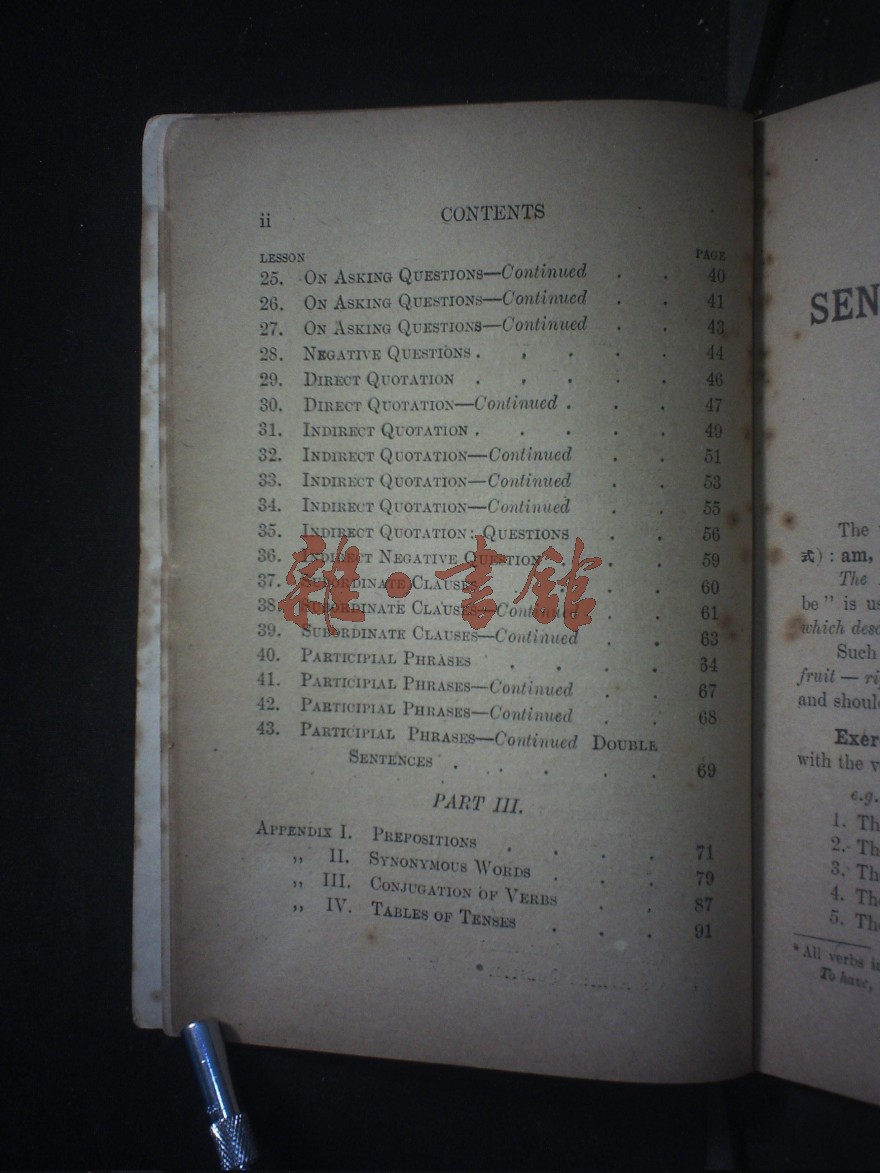 ii
CONTENTS
LESSON PAGE
25. On Asking Questions—Continued . . 40
26. On Asking Questions—Continued . . 41
27. On Asking Questions—Continued . . 43
28. Negative Questions . . . . . 44
29. Direct Quotation . . . . . 46
30. Direct Quotation—Continued . . . 47
31. Indirect Quotation . . . . . 49
32. Indirect Quotation—Continued . . 51
33. Indirect Quotation—Continued . . 53
34. Indirect Quotation—Continued . . 55
35. Indirect Quotation: Questions . . 56
36. Indirect Negative Question . . 59
37. Subordinate Clauses . . . 60
38. Subordinate Clauses—Continued . . 61
39. Subordinate Clauses—Continued . . 63
40. Participial Phrases . . . . 34
41. Participial Phrases—Continued . . 67
42. Participial Phrases—Continued . . 68
43. Participial Phrases—Continued Double
Sentences . . . . . 69
PART III.
Appendix I. Prepositions . . . . 71
„ II. Synonymous Words . . . 79
„ III. Conjugation of Verbs . . 87
„ IV. Tables of Tenses . . . 91
雜·書館
SEN
The
式) : am,
The
be" is us
which desc
Such
fruit — ri
and shoul
Exer
with the v
e.g.
1. Th
2. Th
3. Th
4. The
5. The
*All verbs in
To have,